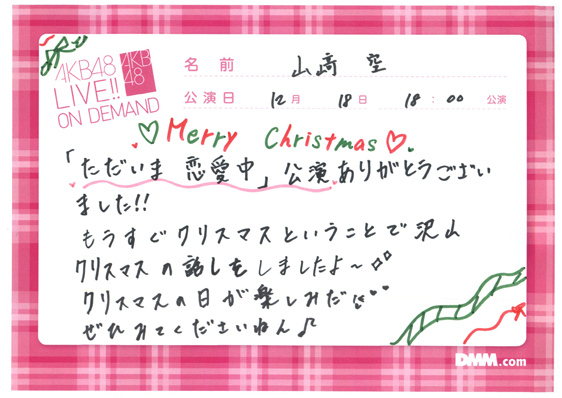 AKB48
LIVE!!
ON DEMAND
AKB
48
名前 山﨑 空
公演日 12月 18日 18:00 公演
♡Merry Christmas♡.
「ただいま 恋愛中」公演ありがとうござい
ました!!
もうすぐクリスマスということで沢山
クリスマスの話しをしましたよ〜
クリスマスの日が楽しみだ
ぜひみてくださいねん♪
DMM.com